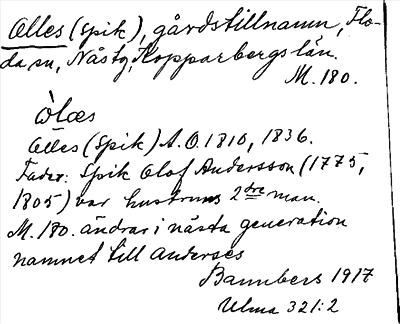 Olles (Spik), gårdstillnamn, Flo-
da sn, Nåstg, Kopparbergs län.
M. 180.
ὼlæs
Olles (Spik) A. O. 1810, 1836.
Fader: Spik Olof Andersson (1775,
1805) var hustruns 2dre man.
M. 180. ändrar i nästa generation
namnet till Anderses
Bannbers 1917
Ulma 321:2